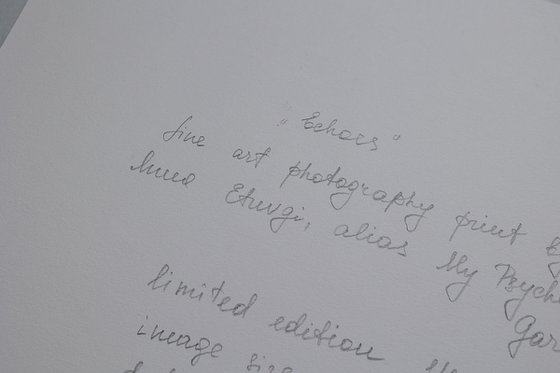 „Echoes“
fine art photography print by
Anna Etuvgi, alias My Psych
Gar
limited edition
image size